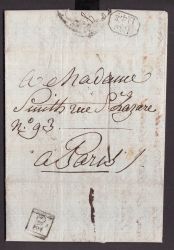 a Madame
Smith rue St Lazare
N.o 93
a Paris